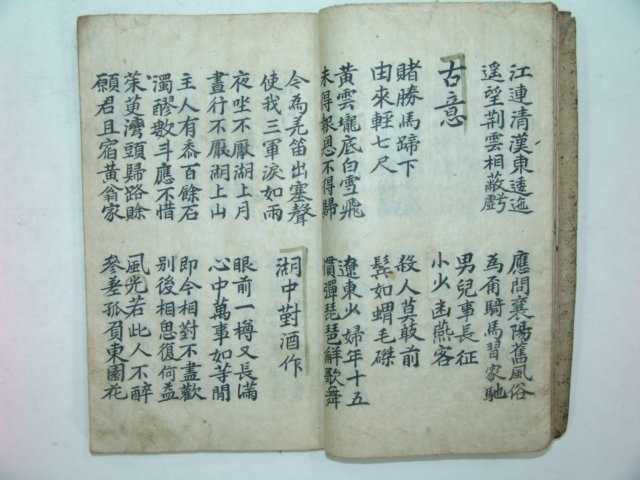 江連清漢東逶迤
遥望荆雲相蔽虧
應問襄陽舊風俗
為甭騎馬習家馳
古意
男兒事長征
小少幽燕客
賭勝馬蹄下
由來輕七尺
殺人莫敢前
鬂如蝟毛磔
黃雲壠底白雪飛
未得報恩不得歸
遼東少婦年十五
慣彈琵琶觧歌舞
今為羌笛出塞聲
使我三軍淚如雨
湖中對酒作
夜坐不厭湖上月
晝行不厭湖上山
眼前一樽又長滿
心中萬事如等閒
主人有黍百餘石
濁醪數斗應不惜
即今相對不盡歡
別後相思復何益
茱萸灣頭歸路賖
願君且宿黃翁家
風光若此人不醉
參差孤負東園花